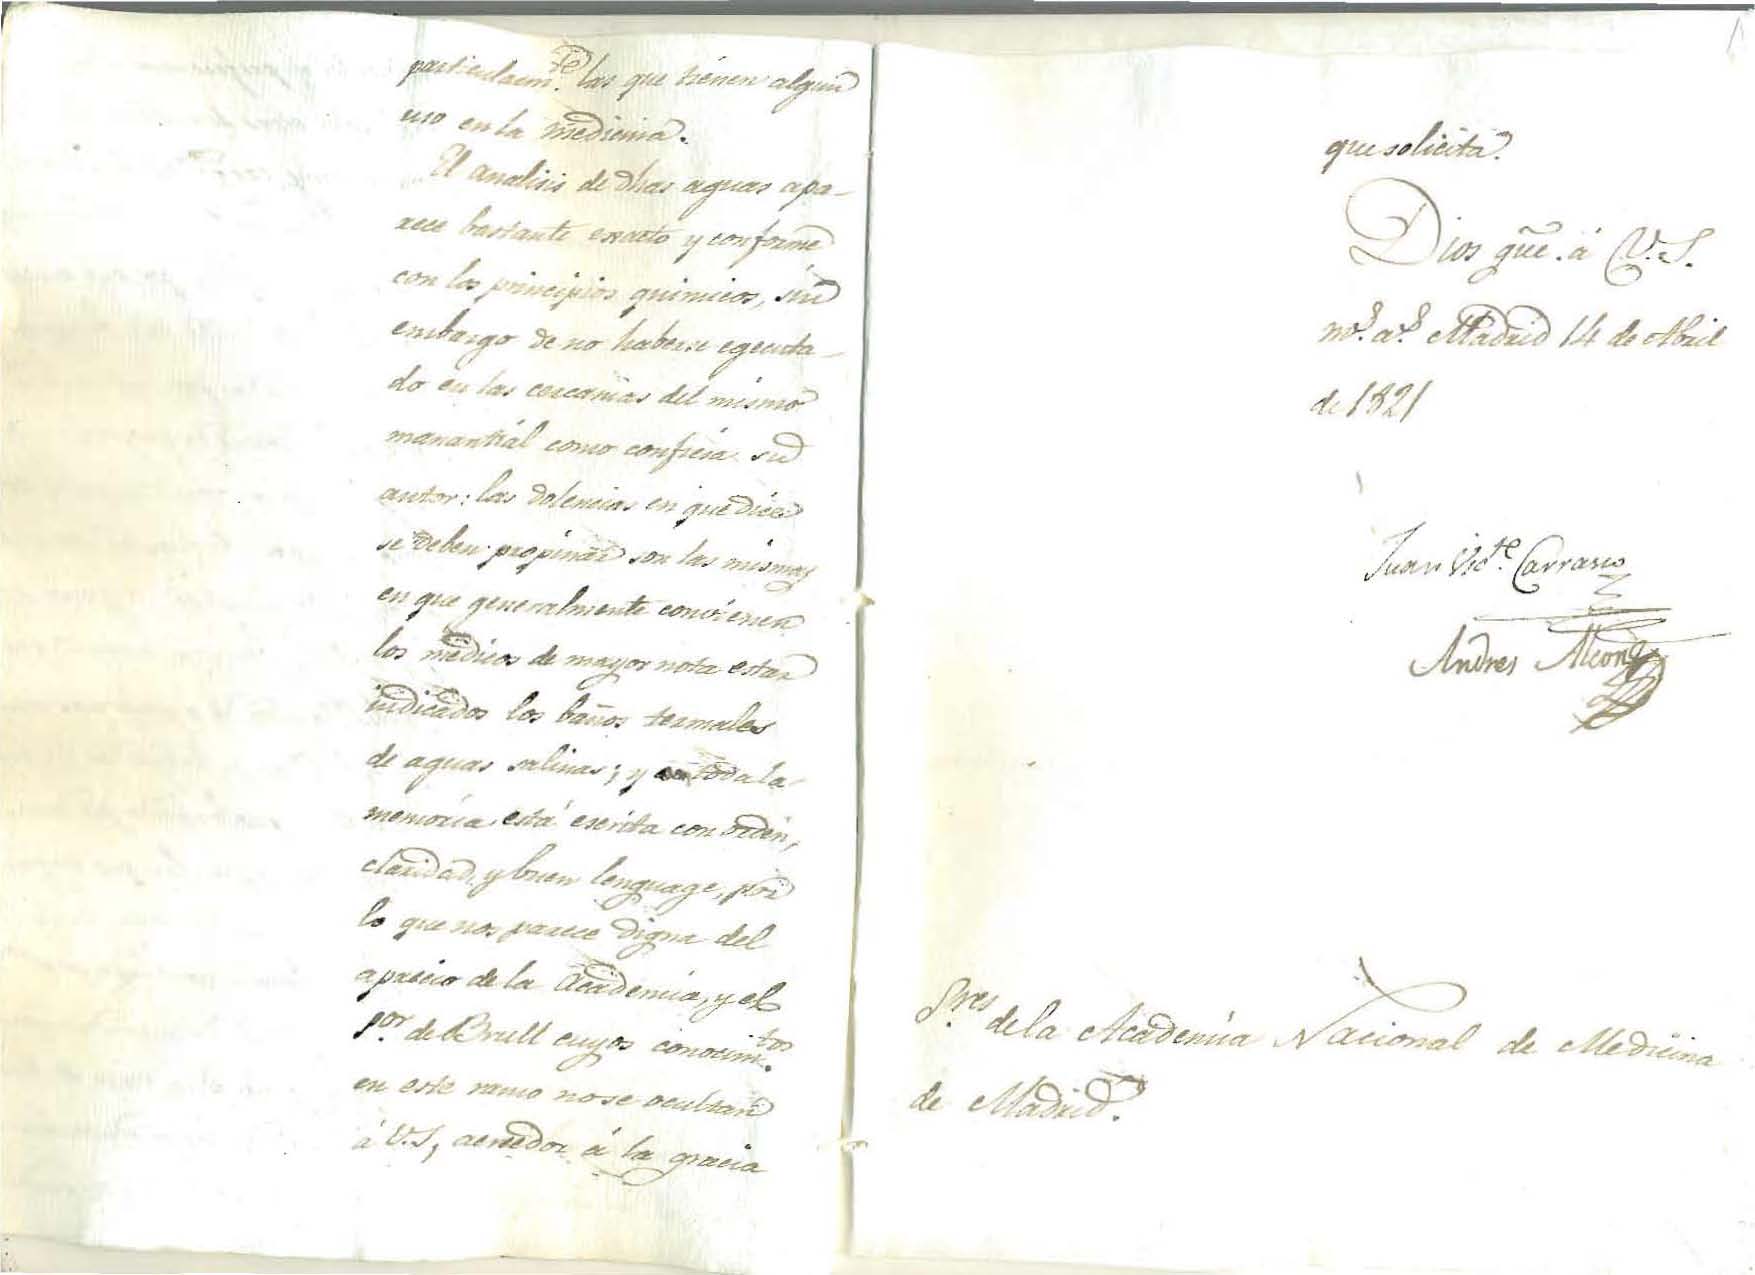 particularm.te las que tienen algun
uso en la medicina.
El analisis de dhas aguas apa-
rece bastante exacto y conforme
con los principios quimicos, sin
embargo de no haberse egecuta-
do en las cercanias del mismo
manantial como confiesa su
autor: las dolencias en que dice
se deben propinar son las mismas
en que generalmente convienen
los medicos de mayor nota estar
indicados los baños termales
de aguas salinas; y toda la
memoria está escrita con orden,
claridad, y buen lenguage, por
lo que nos parece digna del
aprecio de la Academia, y el
P.or de Brull cuyos conocim.tos
en este ramo no se ocultan
á V.S, acreedor á la gracia
que solicita.
Dios gũe. á V.S.
m.s a.s Madrid 14 de Abril
de 1821
Juan Vic.te Carrasco
Andres Alcon
S.res de la Academia Nacional de Medicina
de Madrid.